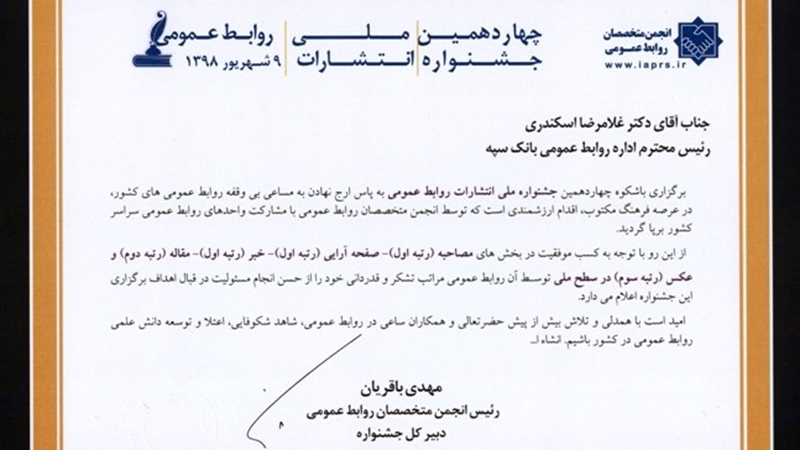 انجمن متخصصان
روابط عمومی
www.iaprs.ir
چهاردهمین ملی روابط عمومی
جشنواره انتشارات ۹ شهریور ۱۳۹۸
جناب آقای دکتر غلامرضا اسکندری
رئیس محترم اداره روابط عمومی بانک سپه
برگزاری باشکوه چهاردهمین جشنواره ملی انتشارات روابط عمومی به پاس ارج نهادن به مساعی بی وقفه روابط عمومی های کشور،
در عرصه فرهنگ مکتوب، اقدام ارزشمندی است که توسط انجمن متخصصان روابط عمومی با مشارکت واحدهای روابط عمومی سراسر
کشور برپا گردید.
از این رو با توجه به کسب موفقیت در بخش های مصاحبه (رتبه اول)- صفحه آرایی (رتبه اول)- خبر (رتبه اول)- مقاله (رتبه دوم) و
عکس (رتبه سوم) در سطح ملی توسط آن روابط عمومی مراتب تشکر و قدردانی خود را از حسن انجام مسئولیت در قبال اهداف برگزاری
این جشنواره اعلام می دارد.
امید است با همدلی و تلاش بیش از پیش حضرتعالی و همکاران ساعی در روابط عمومی، شاهد شکوفایی، اعتلا و توسعه دانش علمی
روابط عمومی در کشور باشیم. انشاء ا...
مهدی باقریان
رئیس انجمن متخصصان روابط عمومی
دبیر کل جشنواره